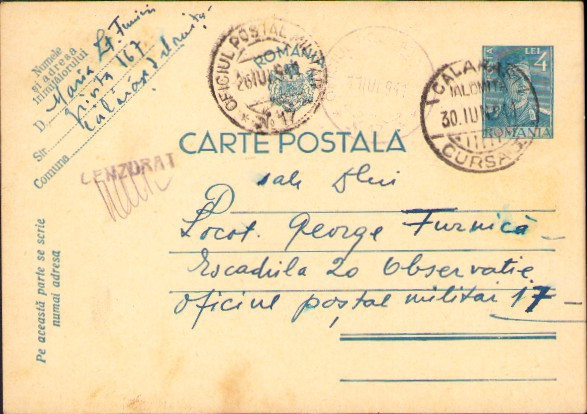 Numele
și adresa
trimițătorului
D. Maria Lt. Furnică
Str. Știrbei 167
Comuna Călărași Ialomița
OFICIUL POSTAL MILITAR
26 IUL 941
* No 17 *
ROMANIA
CALARASI
IALOMITA
30.IUN.941
CURSA
LEI 4
ROMANIA
CARTE POSTALĂ
CENZURAT
sale Dlui
D
Locot. George Furnică
Escadrila 20 Observatie
Oficiul poștal militar 17
Pe această parte se scrie
numai adresa